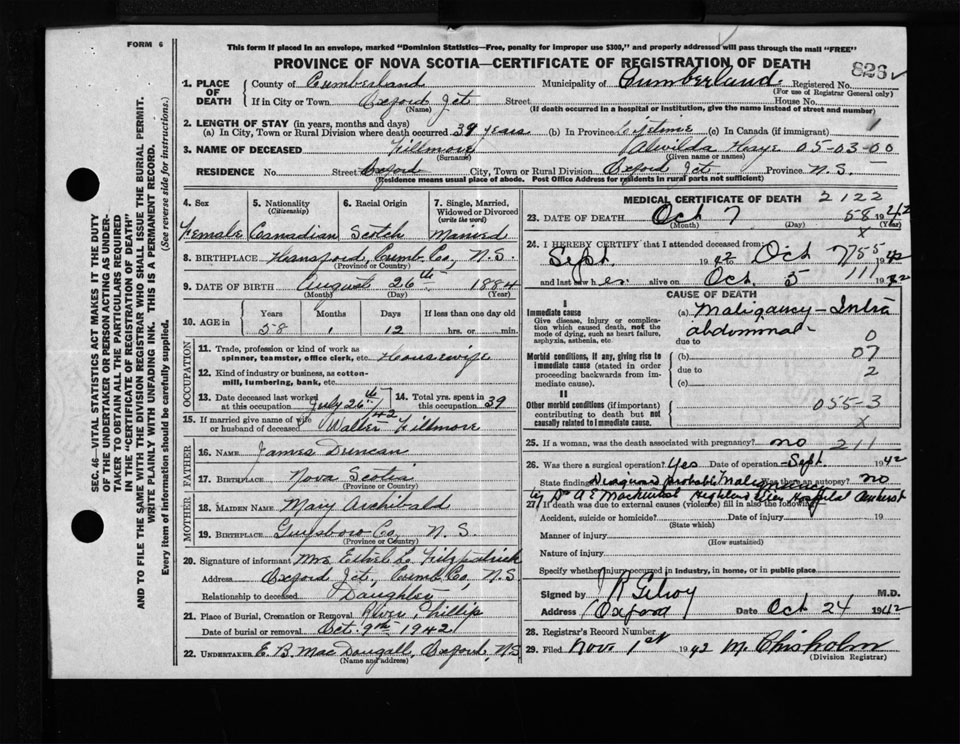 FORM 6
This form if placed in an envelope, marked "Dominion Statistics—Free, penalty for improper use $300," and properly addressed will pass through the mail "FREE"
PROVINCE OF NOVA SCOTIA—CERTIFICATE OF REGISTRATION OF DEATH
826
1. PLACE OF DEATH County of Cumberland Municipality of Cumberland Registered No.
(For use of Registrar General only)
If in City or Town Oxford Jct Street House No.
(Name) (If death occurred in a hospital or institution, give the name instead of street and number)
2. LENGTH OF STAY (in years, months and days)
(a) In City, Town or Rural Division where death occurred 39 years (b) In Province Lifetime (c) In Canada (if immigrant)
3. NAME OF DECEASED Fillmore Alwilda Faye 05-03-00
(Surname) (Given name or names)
RESIDENCE No. Street Oxford City, Town or Rural Division Oxford Jct. Province N.S.
(Residence means usual place of abode. Post Office Address for residents in rural parts not sufficient)
4. Sex Female
5. Nationality (Citizenship) Canadian
6. Racial Origin Scotch
7. Single, Married, Widowed or Divorced (write the word) Married
8. BIRTHPLACE Hansford, Cumb. Co., N.S.
(Province or Country)
9. DATE OF BIRTH August 26th 1884
(Month) (Day) (Year)
10. AGE in Years Months Days If less than one day old
58 1 12 hrs. or min.
OCCUPATION
11. Trade, profession or kind of work as spinner, teamster, office clerk, etc. Housewife
12. Kind of industry or business, as cotton-mill, lumbering, bank, etc.
13. Date deceased last worked at this occupation July 26th/42
14. Total yrs. spent in this occupation 39
15. If married give name of wife or husband of deceased Walter Fillmore
FATHER
16. NAME James Duncan
17. BIRTHPLACE Nova Scotia
(Province or Country)
MOTHER
18. MAIDEN NAME Mary Archibald
19. BIRTHPLACE Guysboro Co, N.S.
(Province or Country)
20. Signature of informant Mrs Ethel L. Fitzpatrick
Address Oxford Jct, Cumb. Co, N.S.
Relationship to deceased Daughter
21. Place of Burial, Cremation or Removal River Phillip
Date of burial or removal Oct. 9th 1942
22. UNDERTAKER E. B. MacDougall, Oxford, N.S.
(Name and address)
MEDICAL CERTIFICATE OF DEATH 2122
23. DATE OF DEATH Oct 7 58 1942
(Month) (Day) (Year)
x
24. I HEREBY CERTIFY that I attended deceased from
Sept. 1942 to Oct 7 55 1942
and last saw her alive on Oct. 5 111 1942
CAUSE OF DEATH
I
Immediate cause (a) Maligancy - Intra abdominal
Give disease, injury or complication which caused death, not the mode of dying, such as heart failure, asphyxia, asthenia, etc.
due to 0
Morbid conditions, if any, giving rise to immediate cause (stated in order proceeding backwards from immediate cause).
(b) 07
due to 2
(c)
II
Other morbid conditions (if important) contributing to death but not causally related to immediate cause.
055-3
x
25. If a woman, was the death associated with pregnancy? no 211
26. Was there a surgical operation? Yes Date of operation Sept. 1942
State findings Diagnosed probable Malignancy Was there an autopsy? no
by Dr A E Mackintosh Highland View Hospital Amherst
27. If death was due to external causes (violence) fill in also the following
Accident, suicide or homicide? Date of injury 19
Manner of injury
(How sustained)
Nature of injury
Specify whether injury occurred in industry, in home, or in public place
Signed by J R Gilroy M.D.
Address Oxford Date Oct 24 1942
28. Registrar's Record Number
29. Filed Nov. 1st 1942 M. Chisholm
(Division Registrar)
SEC. 46—VITAL STATISTICS ACT MAKES IT THE DUTY
OF THE UNDERTAKER OR PERSON ACTING AS UNDERTAKER TO OBTAIN ALL THE PARTICULARS REQUIRED
IN THE "CERTIFICATE OF REGISTRATION OF DEATH"
AND TO FILE THE SAME WITH THE DIVISION REGISTRAR WHO SHALL ISSUE THE BURIAL PERMIT.
WRITE PLAINLY WITH UNFADING INK. THIS IS A PERMANENT RECORD.
Every item of information should be carefully supplied. (See reverse side for instructions.)